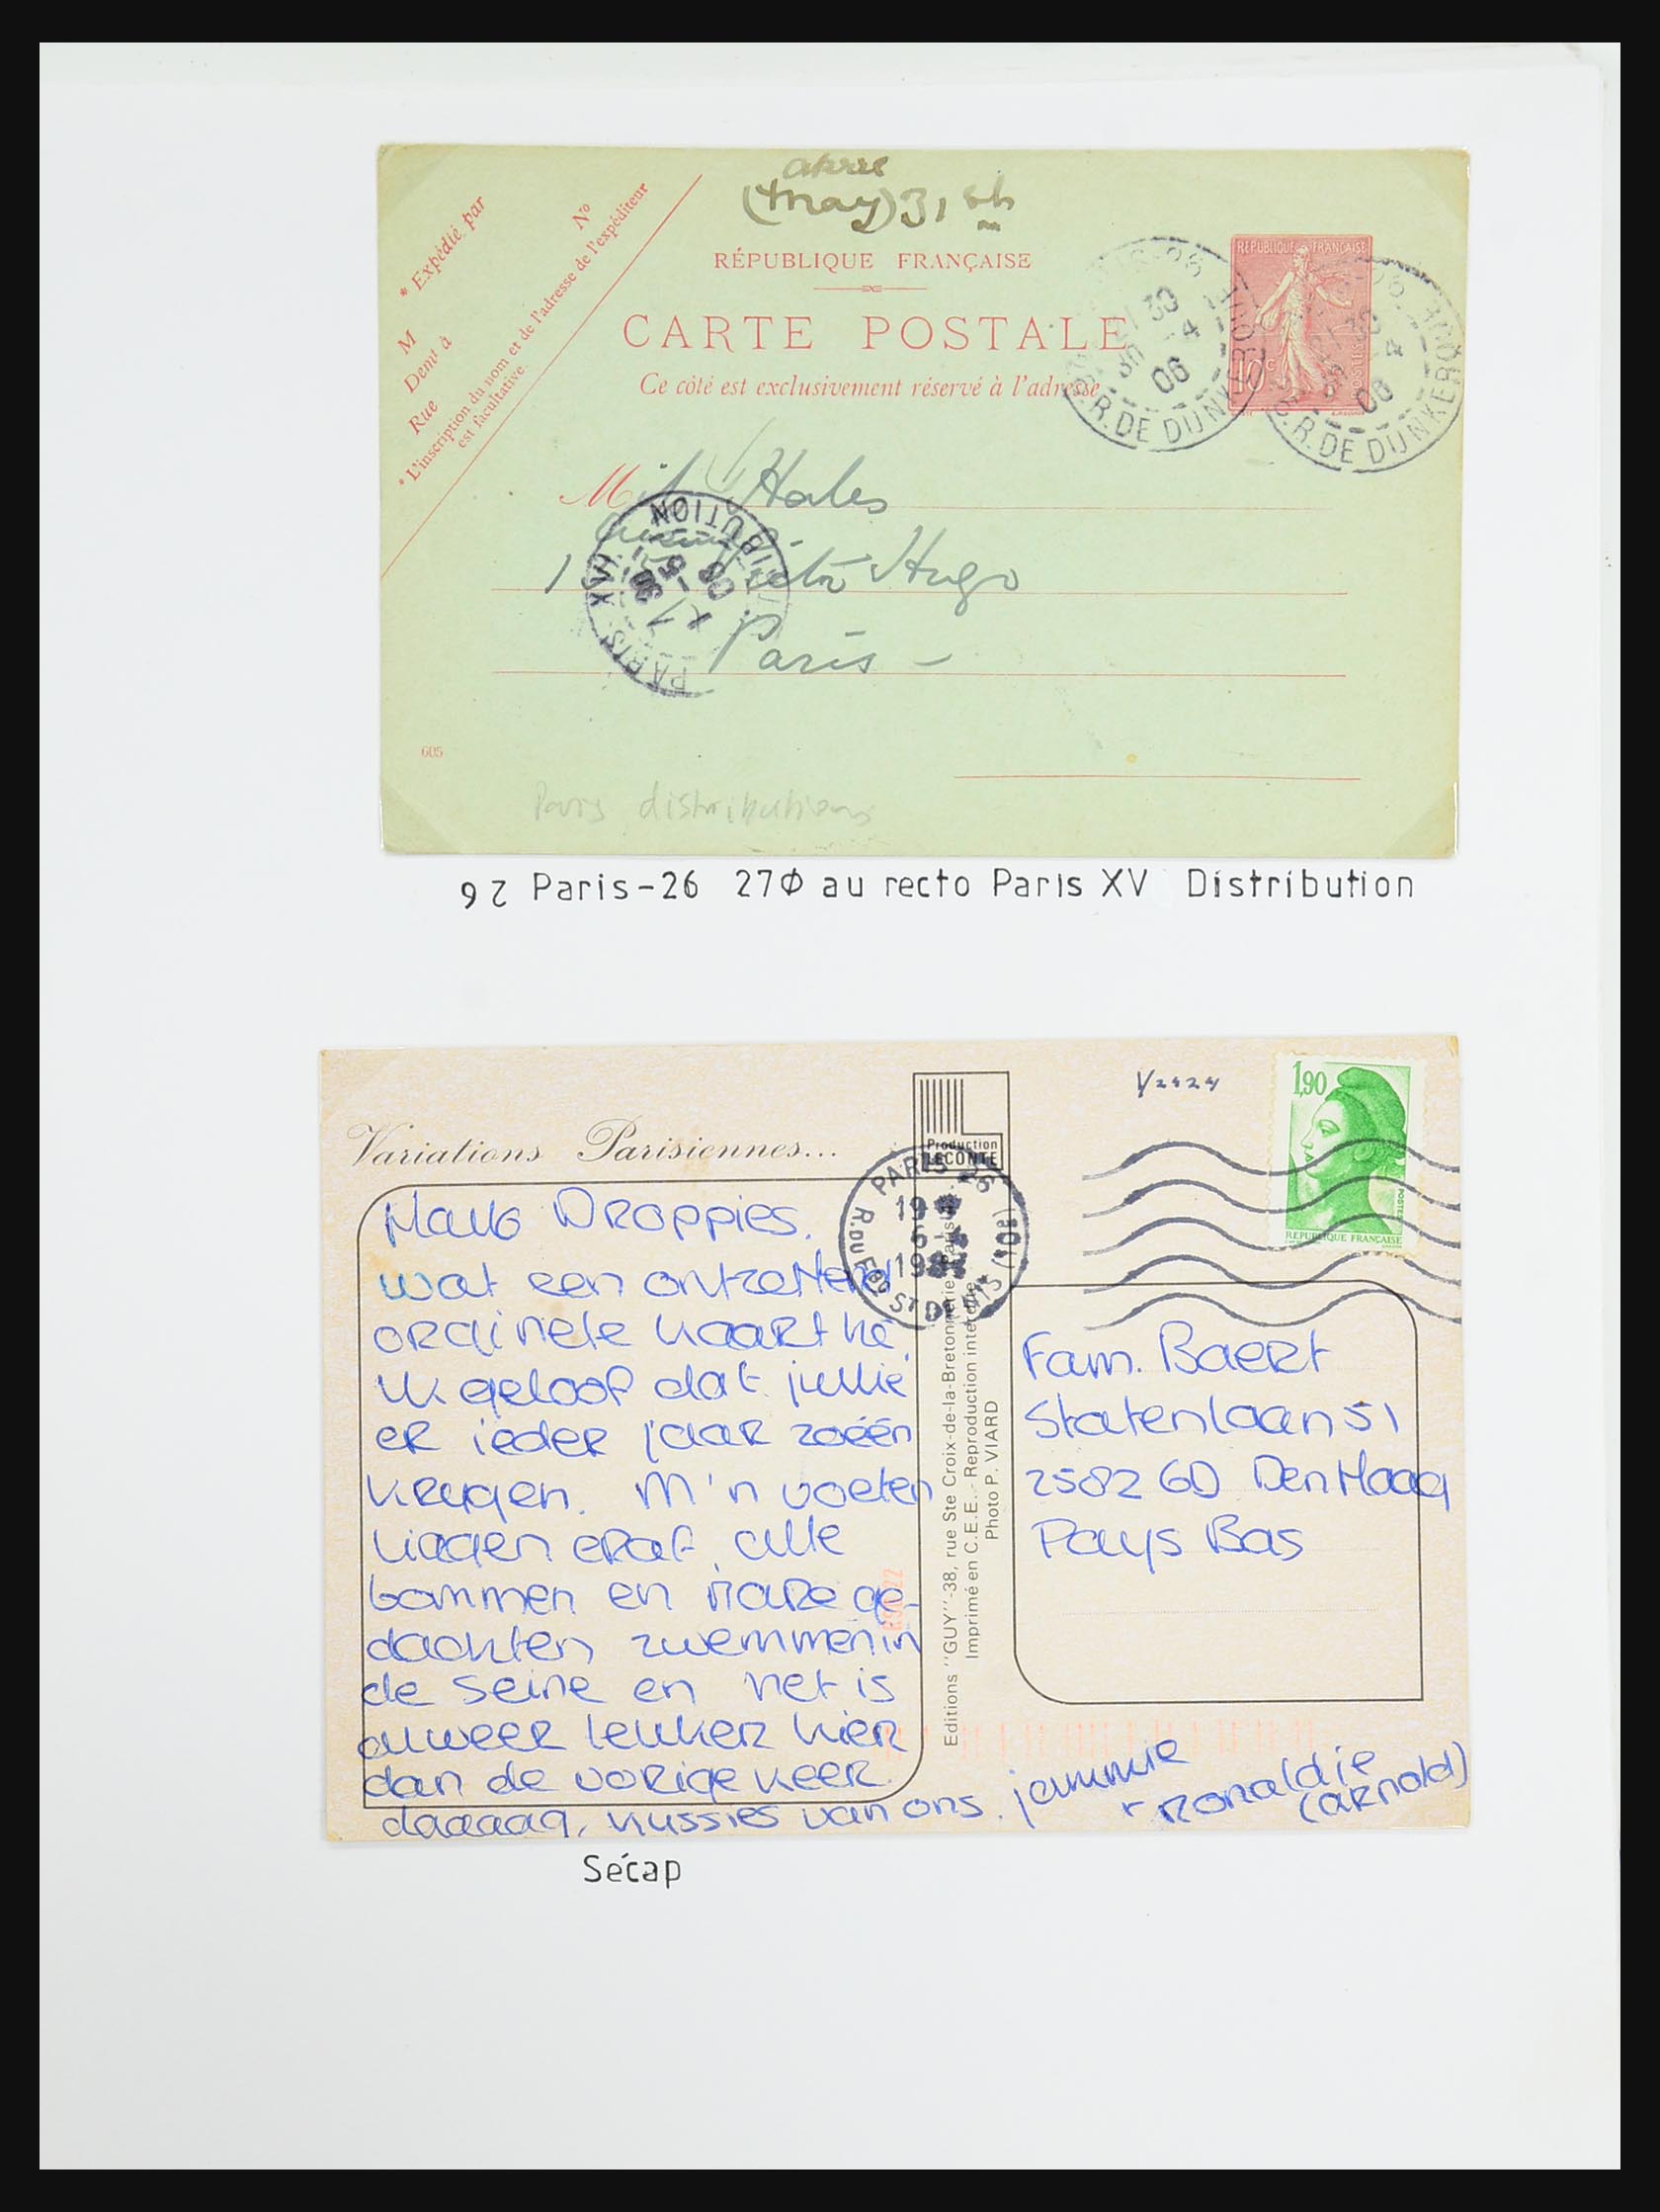 (May) 31
RÉPUBLIQUE FRANÇAISE
CARTE POSTALE
Ce côté est exclusivement réservé à l'adresse
* Expédié par
M
Demt à
Rue
No
* L'inscription du nom et de l'adresse de l'expéditeur
est facultative.
RÉPUBLIQUE FRANÇAISE
10c
POSTES
30
30 -4
06
R. DE DUNKERQUE
30
4
06
R. DE DUNKERQUE
M Hales
1 Victor Hugo
Paris -
PARIS XV DISTRIBUTION
605
Paris distributions
Paris-26 27Φ au recto Paris XV Distribution
Variations Parisiennes...
Production
LECONTE
Y2424
1,90
POSTES
REPUBLIQUE FRANÇAISE
PARIS 26 (10e)
R. DU FBG ST DENIS
19
6
19
Hallo Droppies.
wat een ontzettend
ordinele kaart hè.
Ik geloof dat jullie
er ieder jaar zoéén
krijgen. M'n voeten
liggen eraf, alle
bommen en nare ge-
dachten zwemmen in
de Seine en het is
alweer leuker hier
dan de vorige keer.
daaaag, kussies van ons. jammie
+ Ronaldje
(Arnold)
Editions "GUY"-38, rue Ste Croix-de-la-Bretonnerie-Paris
Imprimé en C.E.E. - Reproduction interdite
Photo P. VIARD
Fam. Baert
Statenlaan 51
2582 GD Den Haag
Pays Bas
Sécap